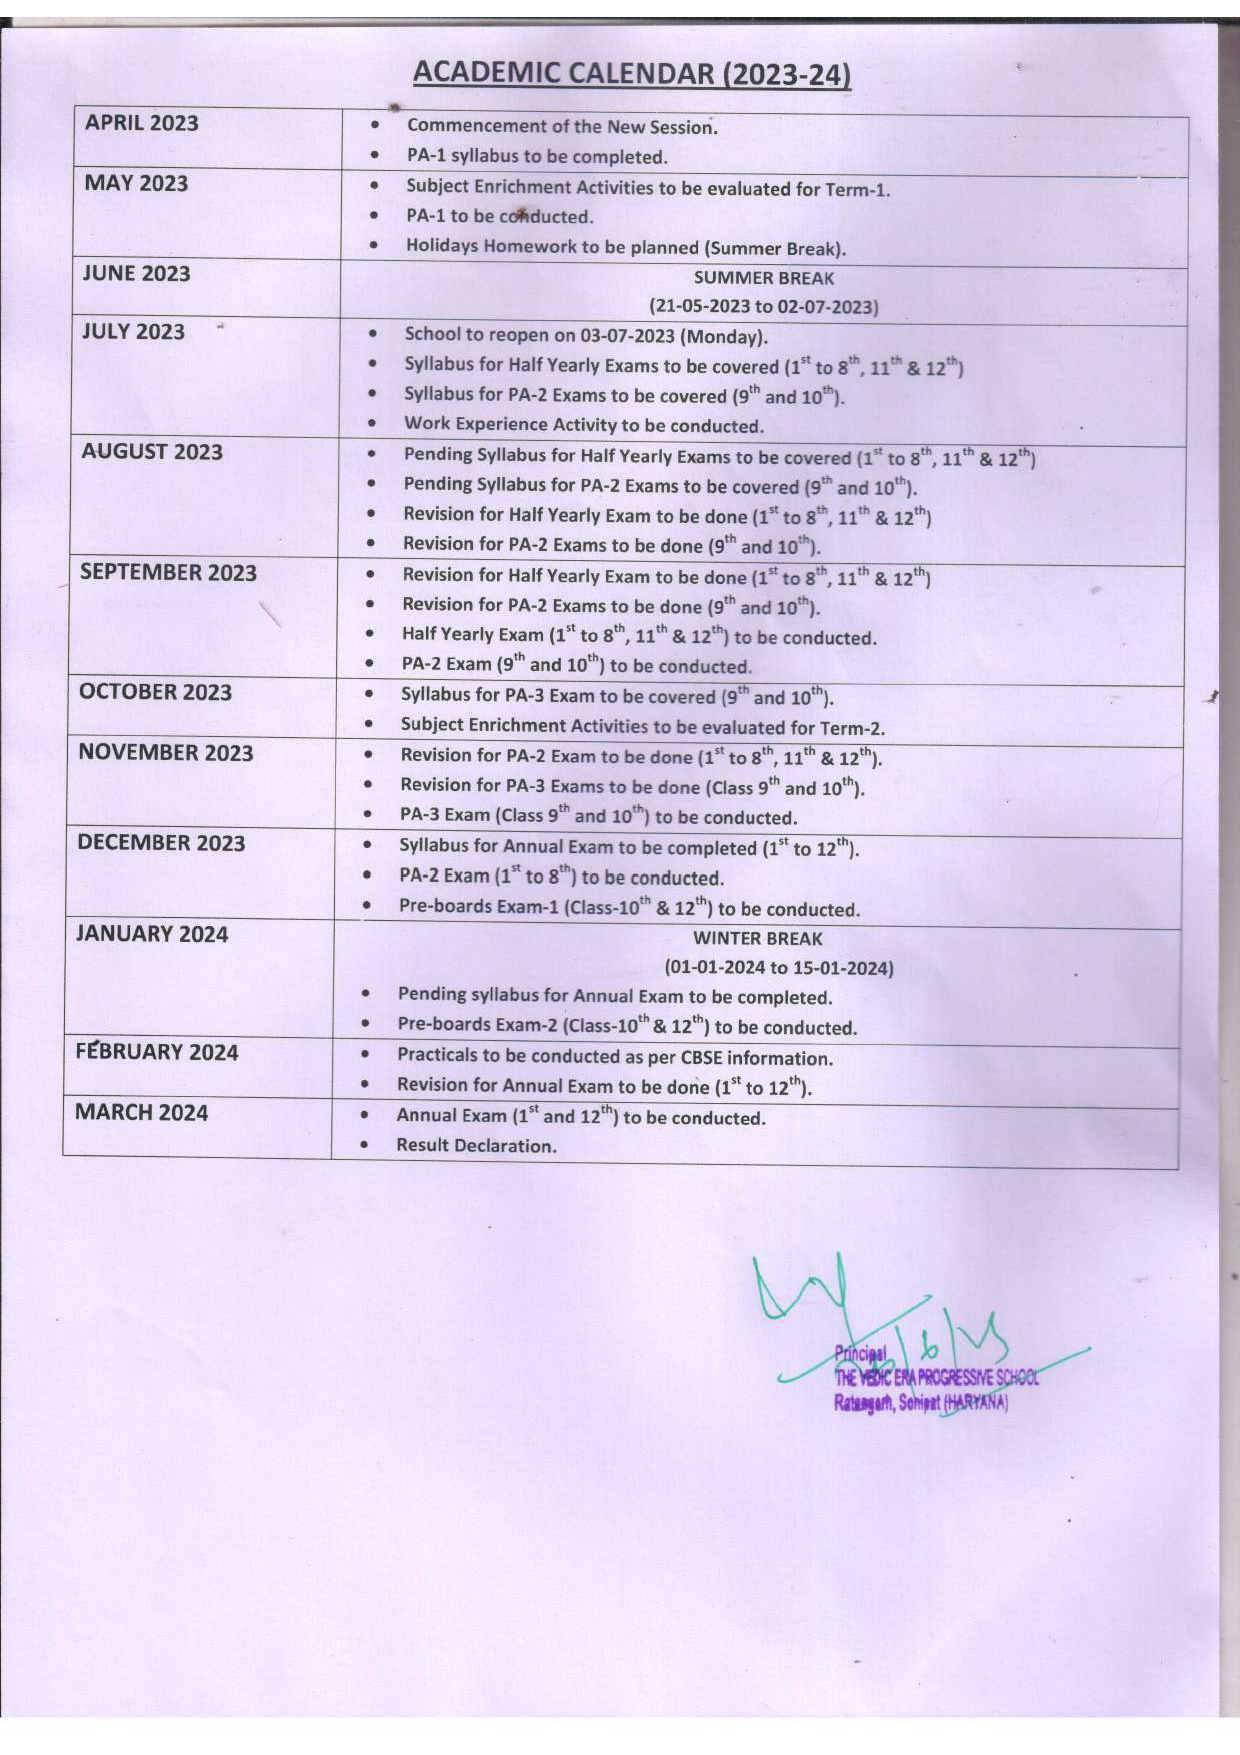 ACADEMIC CALENDAR (2023-24)
APRIL 2023
• Commencement of the New Session.
• PA-1 syllabus to be completed.
MAY 2023
• Subject Enrichment Activities to be evaluated for Term-1.
• PA-1 to be conducted.
• Holidays Homework to be planned (Summer Break).
JUNE 2023
SUMMER BREAK
(21-05-2023 to 02-07-2023)
JULY 2023
• School to reopen on 03-07-2023 (Monday).
• Syllabus for Half Yearly Exams to be covered (1st to 8th, 11th & 12th)
• Syllabus for PA-2 Exams to be covered (9th and 10th).
• Work Experience Activity to be conducted.
AUGUST 2023
• Pending Syllabus for Half Yearly Exams to be covered (1st to 8th, 11th & 12th)
• Pending Syllabus for PA-2 Exams to be covered (9th and 10th).
• Revision for Half Yearly Exam to be done (1st to 8th, 11th & 12th)
• Revision for PA-2 Exams to be done (9th and 10th).
SEPTEMBER 2023
• Revision for Half Yearly Exam to be done (1st to 8th, 11th & 12th)
• Revision for PA-2 Exams to be done (9th and 10th).
• Half Yearly Exam (1st to 8th, 11th & 12th) to be conducted.
• PA-2 Exam (9th and 10th) to be conducted.
OCTOBER 2023
• Syllabus for PA-3 Exam to be covered (9th and 10th).
• Subject Enrichment Activities to be evaluated for Term-2.
NOVEMBER 2023
• Revision for PA-2 Exam to be done (1st to 8th, 11th & 12th).
• Revision for PA-3 Exams to be done (Class 9th and 10th).
• PA-3 Exam (Class 9th and 10th) to be conducted.
DECEMBER 2023
• Syllabus for Annual Exam to be completed (1st to 12th).
• PA-2 Exam (1st to 8th) to be conducted.
• Pre-boards Exam-1 (Class-10th & 12th) to be conducted.
JANUARY 2024
WINTER BREAK
(01-01-2024 to 15-01-2024)
• Pending syllabus for Annual Exam to be completed.
• Pre-boards Exam-2 (Class-10th & 12th) to be conducted.
FEBRUARY 2024
• Practicals to be conducted as per CBSE information.
• Revision for Annual Exam to be done (1st to 12th).
MARCH 2024
• Annual Exam (1st and 12th) to be conducted.
• Result Declaration.
Principal
THE VEDIC ERA PROGRESSIVE SCHOOL
Ratangarh, Sonipat (HARYANA)